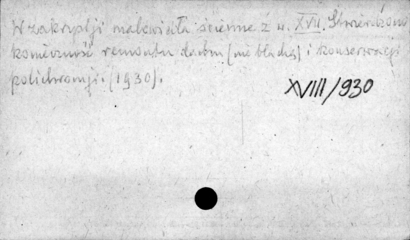 W zakrystji malowidła ścienne z w. XVII. Stwierdzono
konieczność remontu dachu (nie blachą) i konserwacji
polichromji. (1930).
XVIII/930